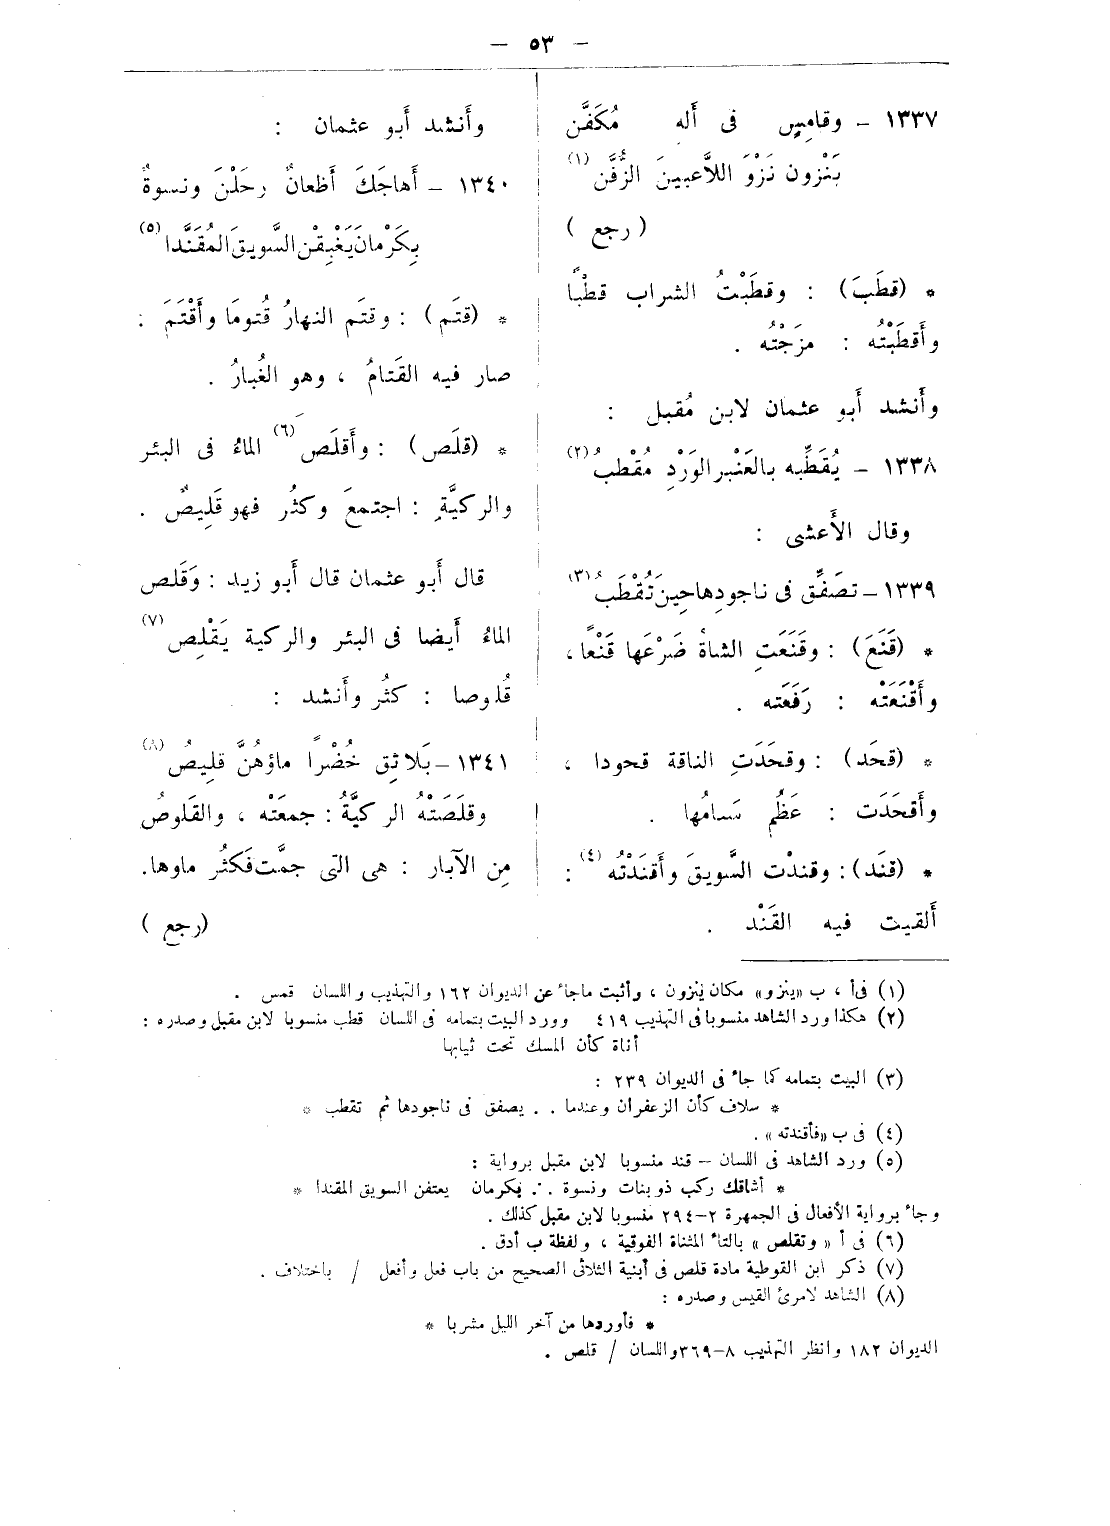 — ٥٣ —
١٣٣٧ – وقامِسٍ فى أَله مُكَفَّن
يَنْزون نَزْوَ اللاَّعبينَ الزُّفَّن (١)
( رجع )
* (قطَبَ) : وقطَبْتُ الشراب قطْبًا
وأَقطَبْتُه : مزَجْتُه .
وأَنشد أَبو عثمان لابن مُقبل :
١٣٣٨ – يُقَطِّبه بالعَنْبر الوَرْدِ مُقْطبُ (٢)
وقال الأَعشى :
١٣٣٩ – تصَفَّق فى ناجودِها حِينَ تُقْطَبُ (٣)
* (قَنَعَ) : وقَنَعَتِ الشاةُ ضَرْعَها قَنْعًا،
وأَقْنَعَتْه : رَفَعَته .
* (قحَد) : وقحَدَتِ الناقة قحودا ،
وأَقحَدَت : عَظُم سَنامُها .
* (قنَد) : وقندْت السَّويقَ وأَقنَدْتُه (٤) :
أَلقيت فيه القَنْد .
وأَنشد أَبو عثمان :
١٣٤٠ – أَهاجَكَ أَظعانٌ رحَلْنَ ونسوةٌ
بِكَرْمانَ يَغْبِقْنَ السَّويقَ المُقَنَّدا (٥)
* (قتَم) : وقتَم النهارُ قُتومًا وأَقْتَمَ :
صار فيه القَتامُ ، وهو الغُبارُ .
* (قلَص) : وأَقلَصَ (٦) الماءُ فى البئر
والركيَّةِ : اجتمعَ وكثُر فهو قَلِيصٌ .
قال أَبو عثمان قال أَبو زيد : وَقَلص
الماءُ أَيضا فى البئر والركية يَقْلِص (٧)
قُلوصا : كثُر وأَنشد :
١٣٤١ – بَلاثِق خُضْرًا ماؤهُنَّ قليصُ (٨)
وقلَصَتْهُ الركيَّةُ : جمعَتْه ، والقَلوصُ
مِن الآبار : هى التى جمَّت فَكثُر ماوها.
(رجع )
(١) فى أ ، ب «ينزو» مكان ينزون ، وأثبت ماجاء عن الديوان ١٦٢ والتهذيب واللسان قمس .
(٢) هكذا ورد الشاهد منسوبا فى التهذيب ٤١٩ وورد البيت بتمامه فى اللسان قطب منسوبا لابن مقبل وصدره :
أناة كأن المسك تحت ثيابها
(٣) البيت بتمامه كما جاء فى الديوان ٢٣٩ :
* سلاف كأن الزعفران وعندما . . يصفق فى ناجودها ثم تقطب *
(٤) فى ب «فأقندته» .
(٥) ورد الشاهد فى اللسان – قند منسوبا لابن مقبل برواية :
* أشاقك ركب ذو بنات ونسوة .·. بكرمان يعتفن السويق المقندا *
وجاء برواية الأفعال فى الجمهرة ٢–٢٩٤ منسوبا لابن مقبل كذلك .
(٦) فى أ « وتقلص » بالتاء المثناة الفوقية ، ولفظة ب أدق .
(٧) ذكر ابن القوطية مادة قلص فى أبنية الثلاثى الصحيح من باب فعل وأفعل / باختلاف .
(٨) الشاهد لامرئ القيس وصدره :
* فأوردها من آخر الليل مشربا *
الديوان ١٨٢ وانظر التهذيب ٨–٣٦٩ واللسان / قلص .